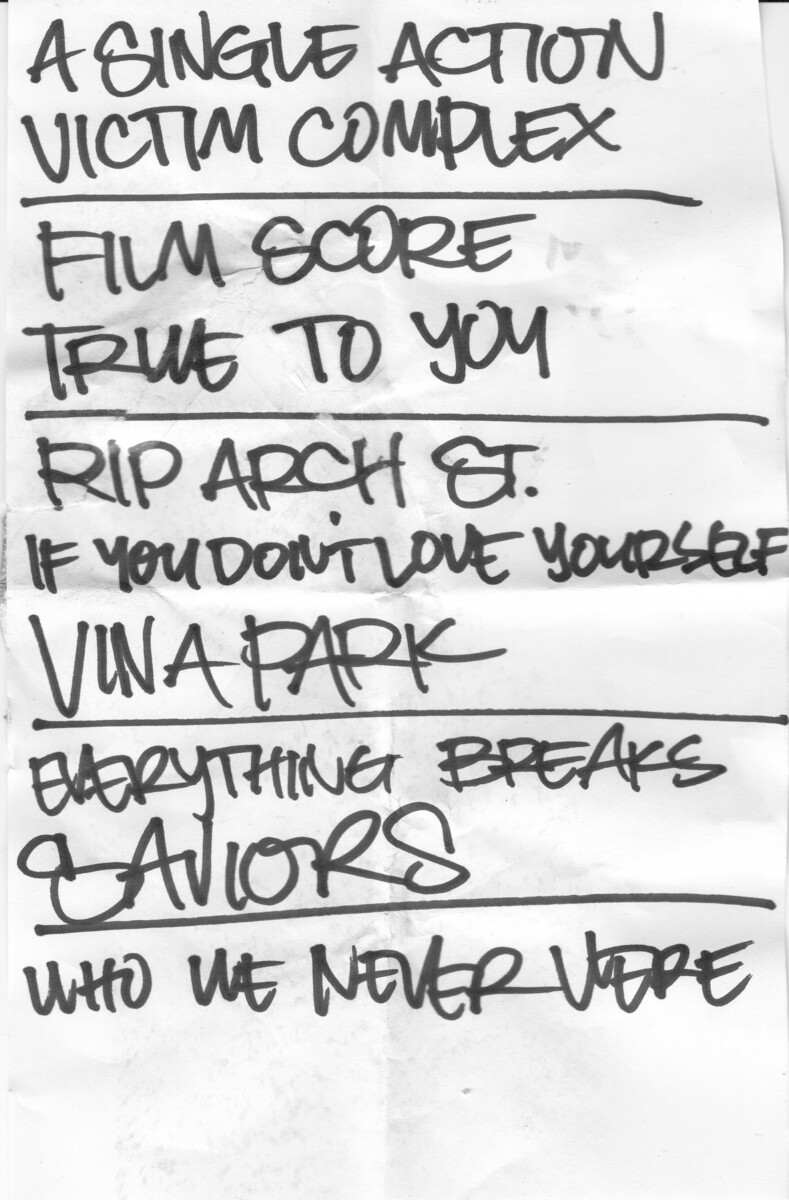 A SINGLE ACTION
VICTIM COMPLEX
FILM SCORE
TRUE TO YOU
RIP ARCH ST.
IF YOU DON'T LOVE YOURSELF
VINA PARK
EVERYTHING BREAKS
SAVIORS
WHO WE NEVER WERE